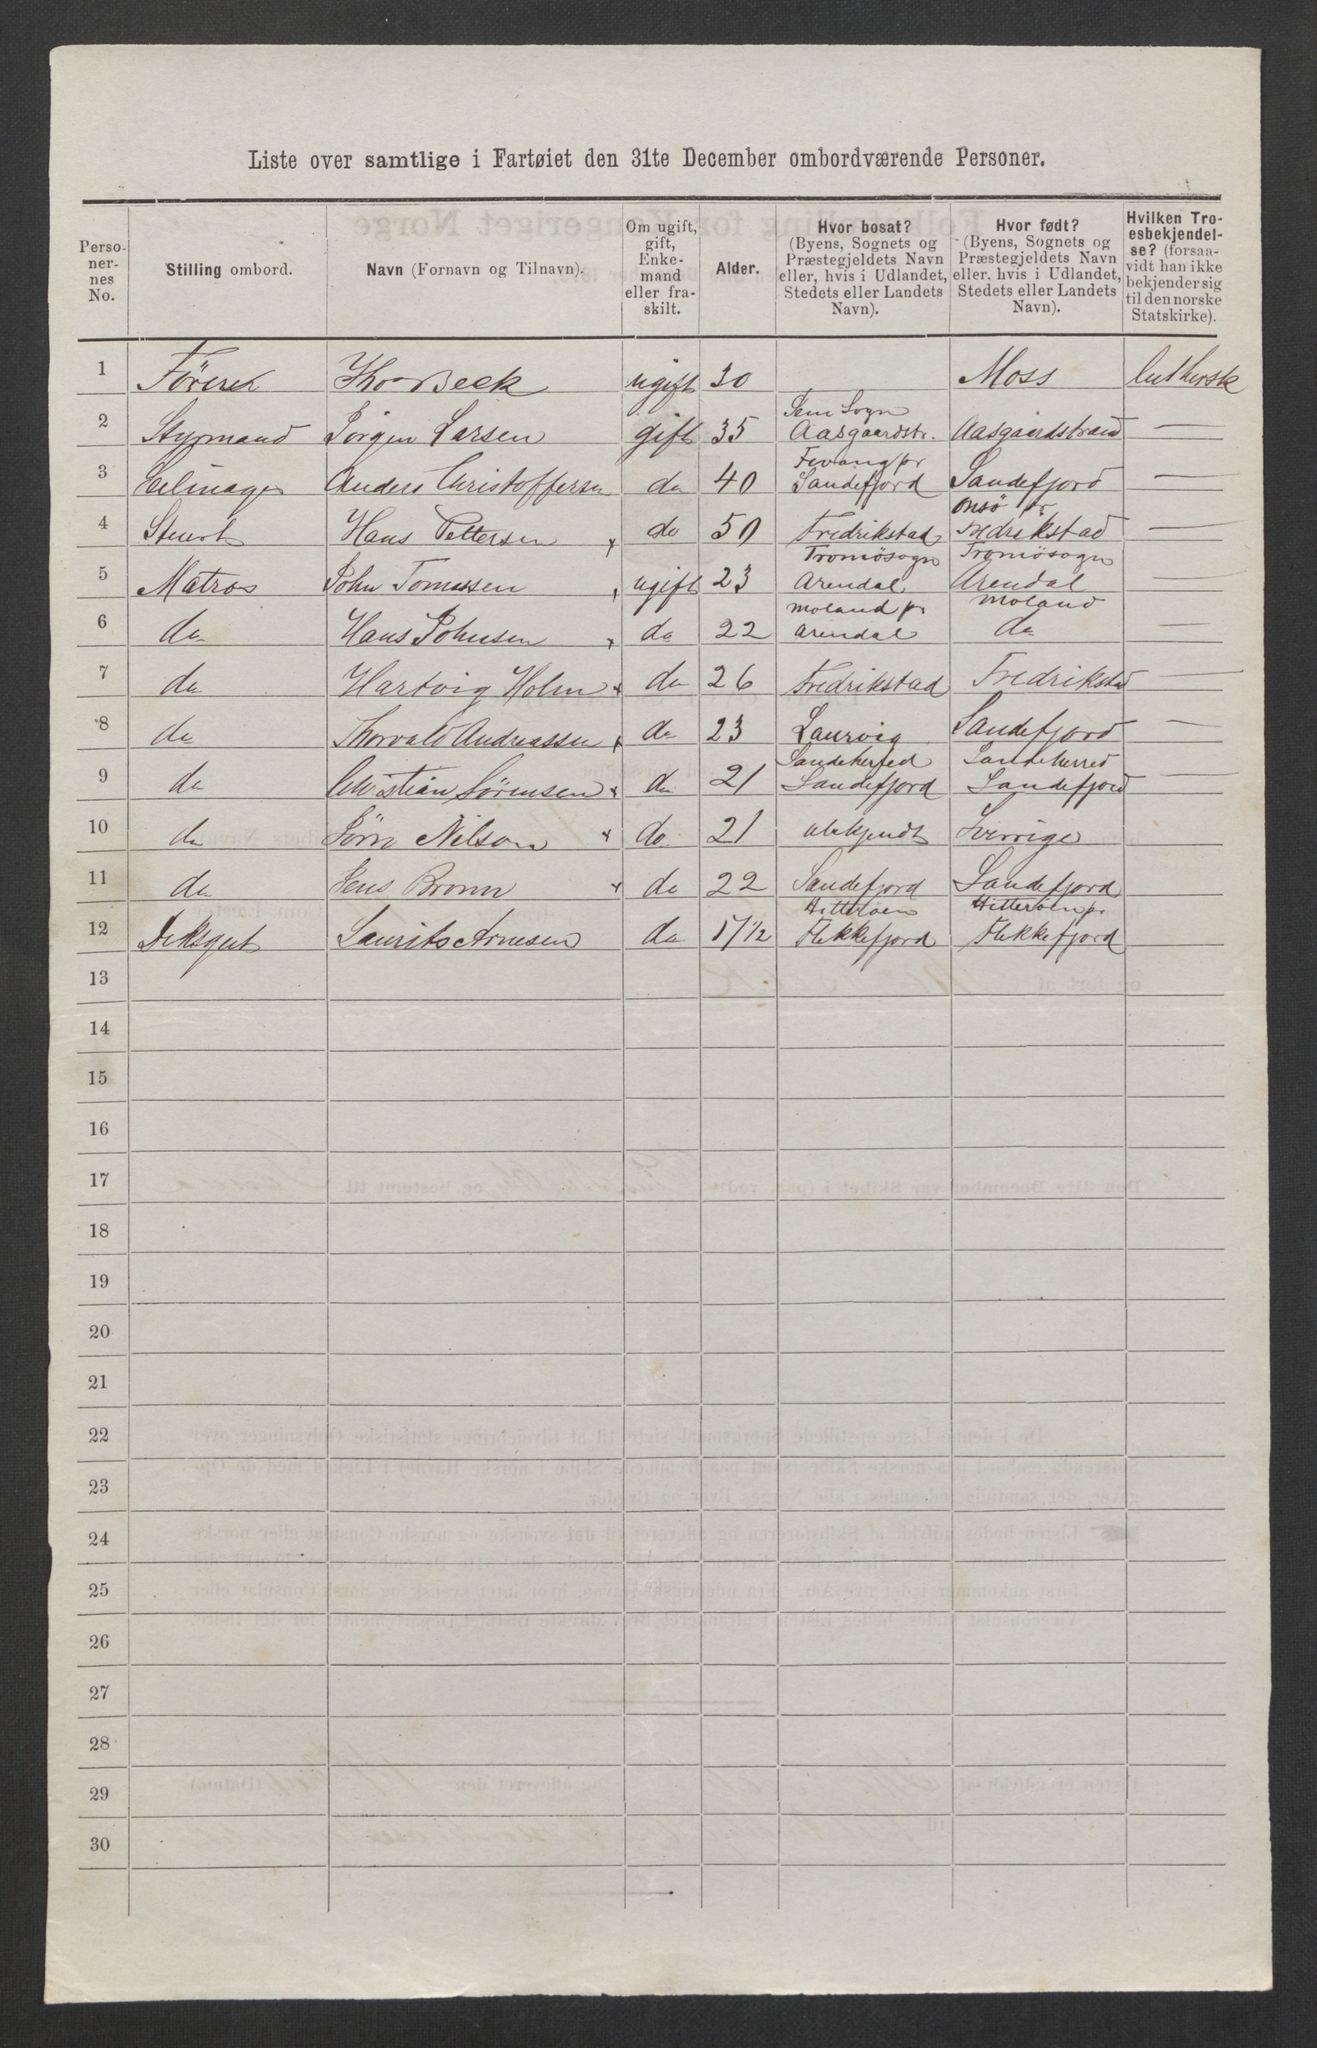 Liste over samtlige i Fartøiet den 31te December ombordværende Personer.
Personernes No. | Stilling ombord. | Navn (Fornavn og Tilnavn). | Om ugift, gift, Enkemand eller fraskilt. | Alder. | Hvor bosat? (Byens, Sognets og Præstegjeldets Navn eller, hvis i Udlandet, Stedets eller Landets Navn). | Hvor født? (Byens, Sognets og Præstegjeldets Navn eller, hvis i Udlandet, Stedets eller Landets Navn). | Hvilken Troesbekjendelse? (forsaavidt han ikke bekjender sig til den norske Statskirke).
1 Förer Beck ugift 30 Moss luthersk
2 Styrmand Jörgen Larsen gift 35 Sem Sogn Aasgaardstr. Aasgaardstrand —
3 Seilmager Anders Christoffersen do 40 Sandefjord Sandefjord —
4 Stuert Hans Pettersen x do 50 Fredrikstad Onsö pr Fredrikstad —
5 Matros John Tomessen ugift 23 Tromösogn Arendal Tromösogn Arendal —
6 do Hans Johnsen x do 22 Moland pr Arendal Moland do —
7 do Hartvig Holm x do 26 Fredrikstad Fredrikstad —
8 do Thorvald Andreassen x do 23 Laurvig Sandefjord —
9 do Christian Sörensen x do 21 Sandeherred Sandefjord Sandeherred Sandefjord —
10 do Sörn Nilson x do 21 ubekjendt Sverrige
11 do Jens Bronn x do 22 Sandefjord Sandefjord
12 Deksgut Laurits Arnesen do 17 1/2 Hitteröen Flekkefjord Hitteröen pr Flekkefjord
13
14
15
16
17
18
19
20
21
22
23
24
25
26
27
28
29
30